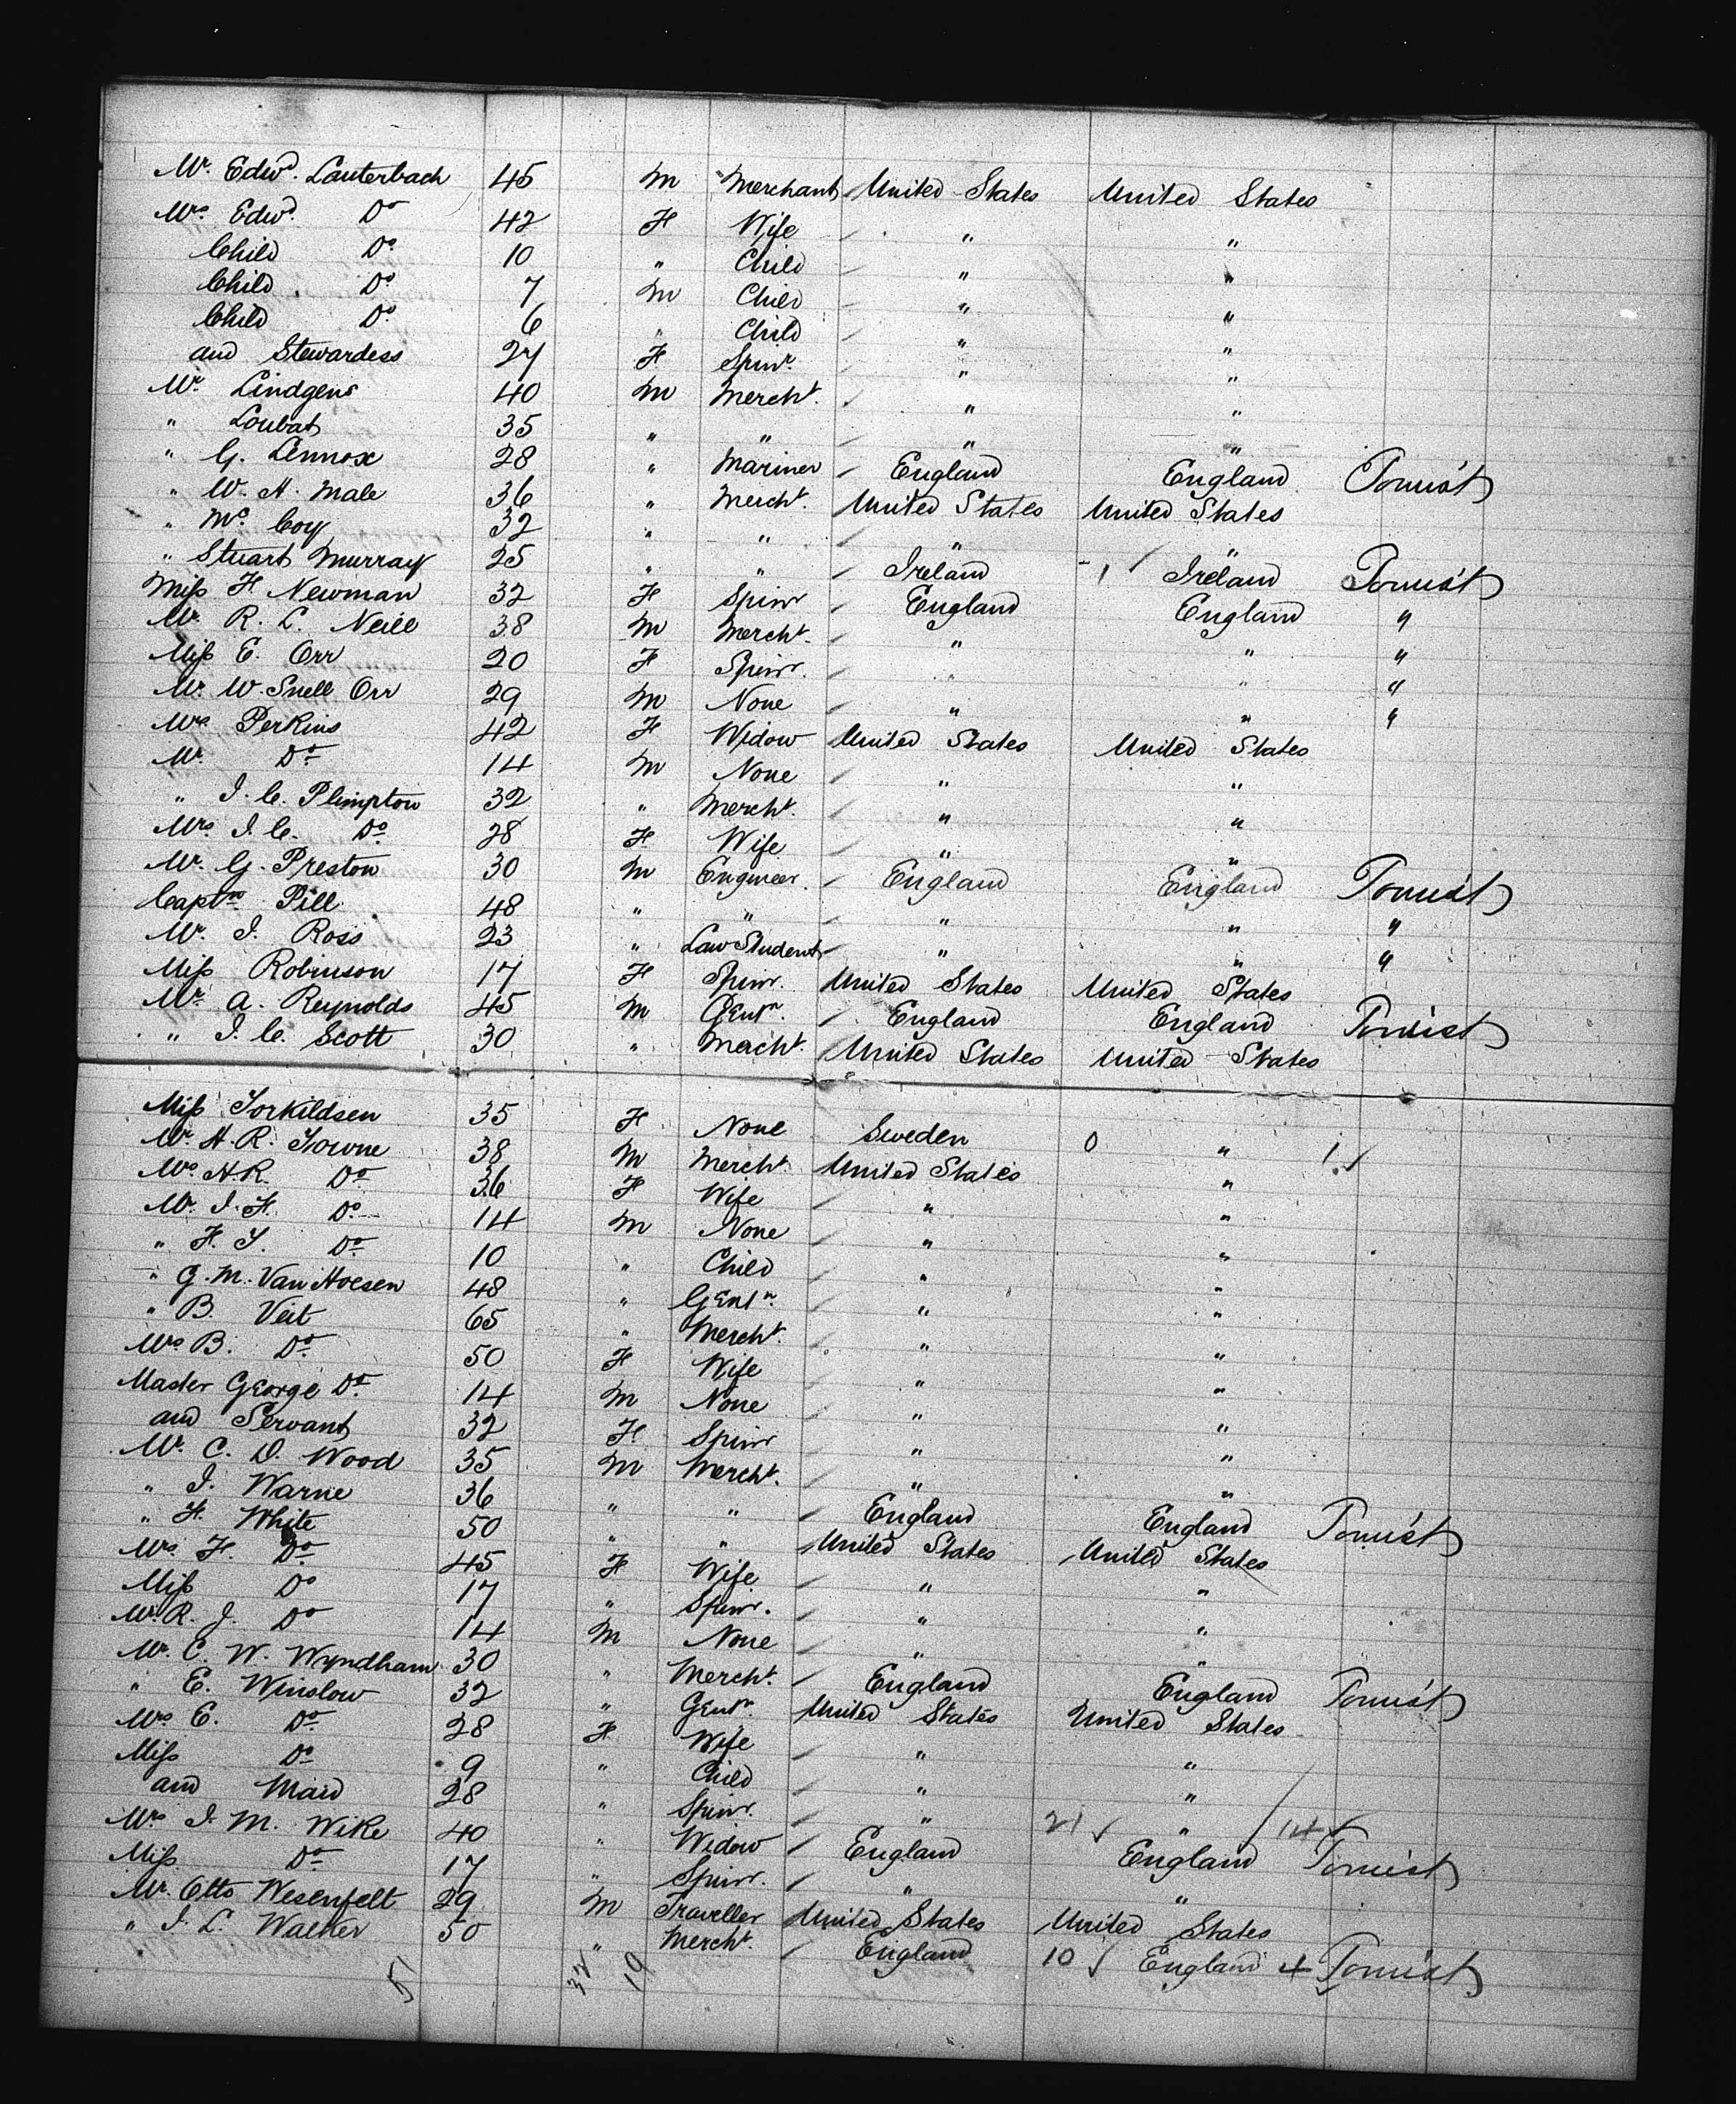 Mr. Edwd. Lauterbach 45 M Merchant United States United States
Mrs. Edwd. Do 42 F Wife " "
Child Do 10 " Child " "
Child Do 7 M Child " "
Child Do 6 " Child " "
and Stewardess 27 F Spinr. " "
Mr. Lindgens 40 M Mercht. " "
" Loubat 35 " " " "
" G. Lennox 28 " Mariner England England Tourist
" W. H. Male 36 " Mercht. United States United States
" Mc. Coy 32 " " " "
" Stuart Murray 25 " " Ireland 1 Ireland Tourist
Miss F. Newman 32 F Spinr England England "
Mr. R. L. Neill 38 M Mercht. " " "
Miss E. Orr 20 F Spinr. " " "
Mr. W. Snell Orr 29 M None " " "
Mrs. Perkins 42 F Widow United States United States
Mr. Do 14 M None " "
" J. C. Plimpton 32 " Mercht. " "
Mrs J. C. Do 28 F Wife " "
Mr. G. Preston 30 M Engineer. England England Tourist
Captn. Pill 48 " " " " "
Mr. J. Ross 23 " Law Student " " "
Miss Robinson 17 F Spinr. United States United States
Mr. A. Reynolds 45 M Gentn. England England Tourist
" J. C. Scott 30 " Mercht. United States United States
Miss Torkildsen 35 F None Sweden 0 " 1
Mr. H. R. Towne 38 M Mercht. United States "
Mrs. H. R. Do 36 F Wife " "
Mr. J. H. Do. 14 M None " "
" F. T. Do 10 " Child " "
" G. M. Van Hoesen 48 " Gentn. " "
" B. Veit 65 " Mercht. " "
Mrs B. Do 50 F Wife " "
Master George Do 14 M None " "
and Servant 32 F Spinr " "
Mr. C. D. Wood 35 M Mercht. " "
" J. Warne 36 " " England England Tourist
" F. White 50 " " United States United States
Mrs. F. Do 45 F Wife " "
Miss Do 17 " Spinr. " "
Mr. R. J. Do 14 M None " "
Mr. C. W. Wyndham 30 " Mercht. England England Tourist
" E. Winslow 32 " Gentn. United States United States
Mrs E. Do 28 F Wife " "
Miss Do 9 " Child " "
and Maid 28 " Spinr. " "
Mrs J. M. Wike 40 " Widow England 21 England 14 Tourist
Miss Do 17 " Spinr. " "
Mr. Otto Wesenfelt 29 M Traveller United States United States
" J. L. Walker 50 " Mercht. England 10 England 4 Tourist
51 32 19